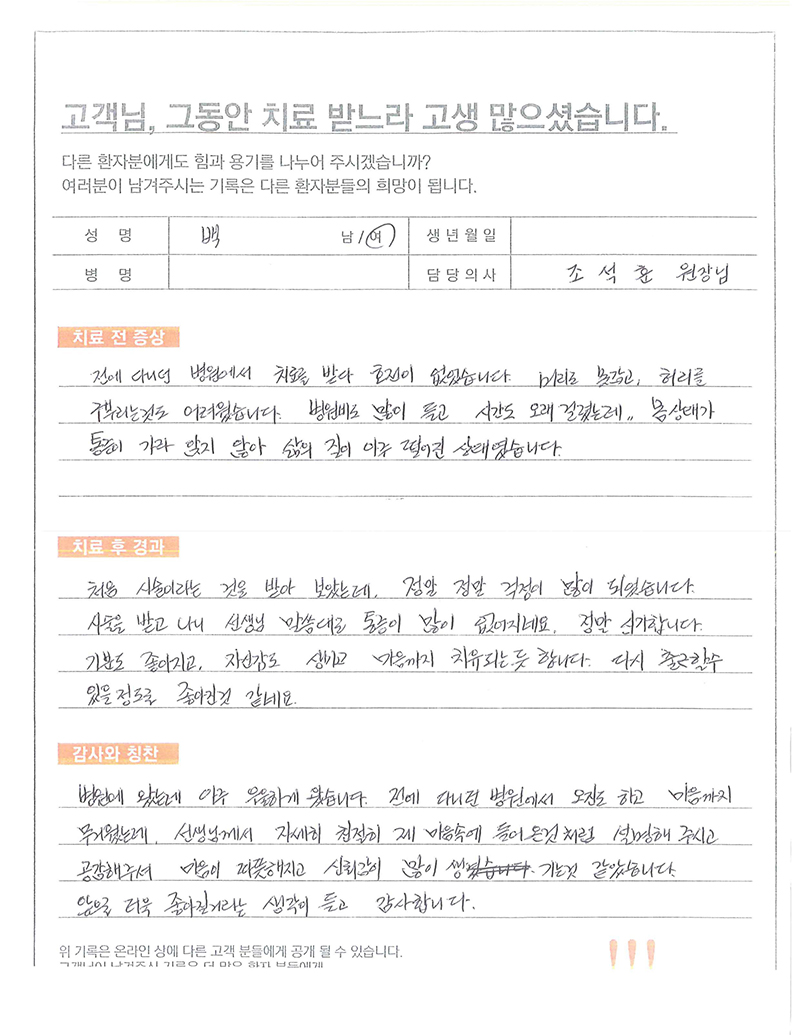 고객님, 그동안 치료 받느라 고생 많으셨습니다.
다른 환자분에게도 힘과 용기를 나누어 주시겠습니까?
여러분이 남겨주시는 기록은 다른 환자분들의 희망이 됩니다.
성 명 백 남/여 생년월일
병 명 담당의사 조석훈 원장님
치료 전 증상
전에 다니던 병원에서 치료를 받다 호전이 없었습니다. 머리도 못감고, 허리를
구부리는것도 어려웠습니다. 병원비도 많이 들고 시간도 오래 걸렸는데.. 몸상태가
통증이 가라 앉지 않아 삶의 질이 아주 떨어진 상태였습니다.
치료 후 경과
처음 시술이라는 것을 받아 보았는데, 정말 정말 걱정이 많이 되었습니다.
시술을 받고 나니 선생님 말씀대로 통증이 많이 없어지네요. 정말 신기합니다.
기분도 좋아지고, 자신감도 생기고 마음까지 치유되는듯 합니다. 다시 출근할수
있을정도로 좋아진것 같네요.
감사와 칭찬
병원에 왔는데 아주 우울하게 왔습니다. 전에 다니던 병원에서 오진도 하고 마음까지
무거웠는데, 선생님께서 자세히 친절히 제 마음속에 들어온것처럼 설명해 주시고
공감해주셔 마음이 따뜻해지고 신뢰감이 많이 생겼습니다. 가는것 같았습니다.
앞으로 더욱 좋아질거라는 생각이 들고 감사합니다.
위 기록은 온라인 상에 다른 고객 분들에게 공개 될 수 있습니다.